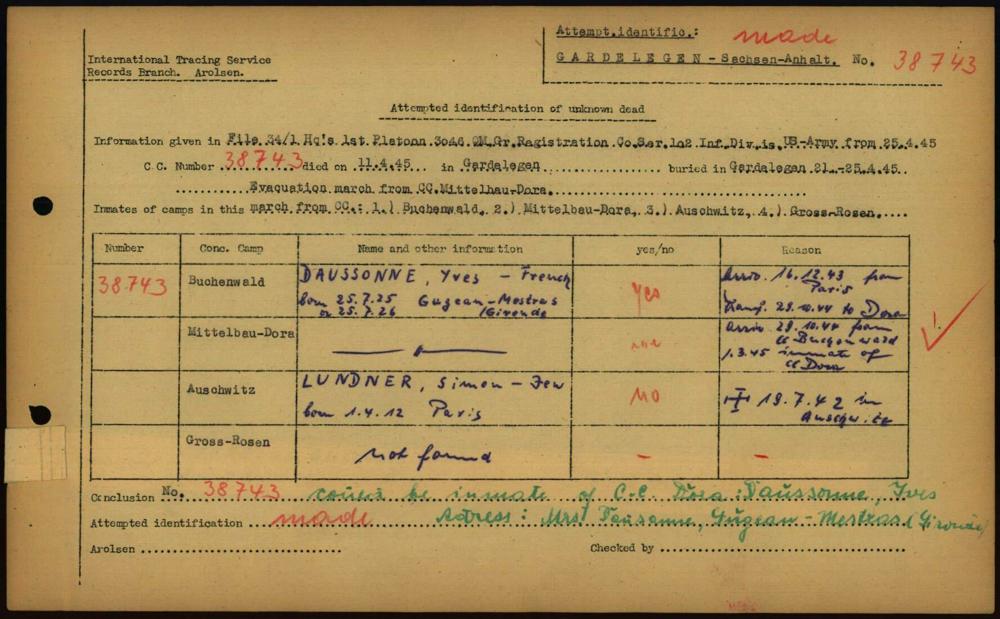 Attempt.identific.: made
International Tracing Service
Records Branch. Arolsen.
GARDELEGEN - Sachsen-Anhalt. No. 38743
Attempted identification of unknown dead
Information given in File 34/1 Hq's 1st Platoon 3046 QM Gr.Registration Co.Ser.1o2 Inf.Div.is. US-Army from 25.4.45
C.C. Number 38743 died on 11.4.45 in Gardalegen buried in Gardalegen 21.-25.4.45.
Evacuation march from CC.Mittelbau-Dora.
Inmates of camps in this march from CC.: 1.) Buchenwald, 2.) Mittelbau-Dora, 3.) Auschwitz, 4.) Gross-Rosen.
Number Conc. Camp Name and other information yes/no Reason
38743 Buchenwald DAUSSONNE, Yves - French yes Arriv. 16.12.43 from
born 25.7.25 Gugean-Mestras Paris
or 25.7.26 /Gironde Transf. 29.10.44 to Dora
Mittelbau-Dora — " — arriv 29.10.44 from
CC
1.3.45 inmate of
CC Dora
Auschwitz LUNDNER, Simon - Jew NO 19.7.42 in
born 1.4.12 Paris
Gross-Rosen not found - -
Conclusion No. 38743 could be inmate of C.C. Dora: Daussonne, Yves
Attempted identification made Adress: Mrs. Dausanne, Gugean-Mestras (Gironde)
Arolsen Checked by